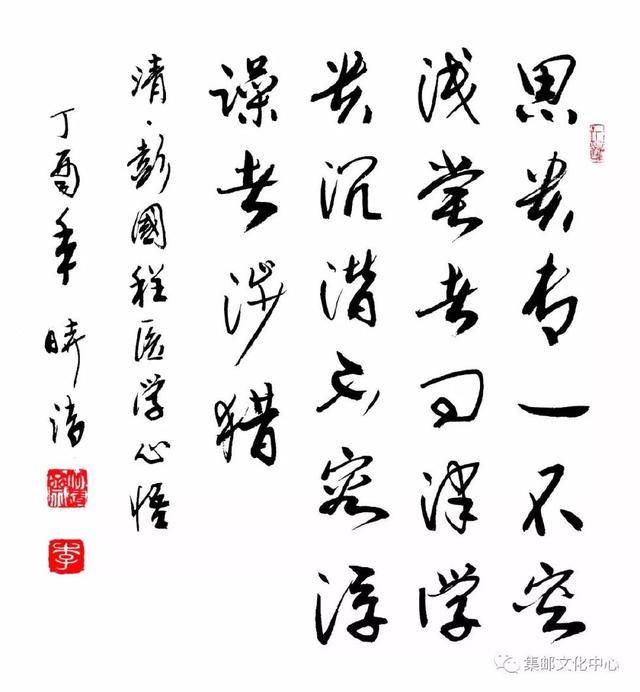 思贵专一不容
浅尝者问津学
贵沉潜不容浮
躁者涉猎
清·彭國程医学心悟
丁酉年
李
集邮文化中心